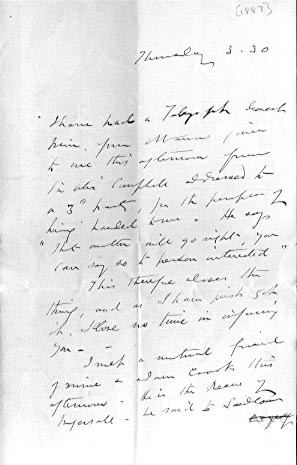 [1887]
Thursday 3.30
"I have had a Telegraph
from your
to me this afternoon from
Sir Alex Campbell addressed to
a 3d party, for the purpose of
being handed to me - He says
"That matter will go right, you
can say so to person interested"
This therefore closes the
thing, and as I have just got
it, I lose no time in informing
you -
I met a mutual friend
of mine & Adam Crooks this
afternoon - He is the Reeve of
Ingersoll - he said to